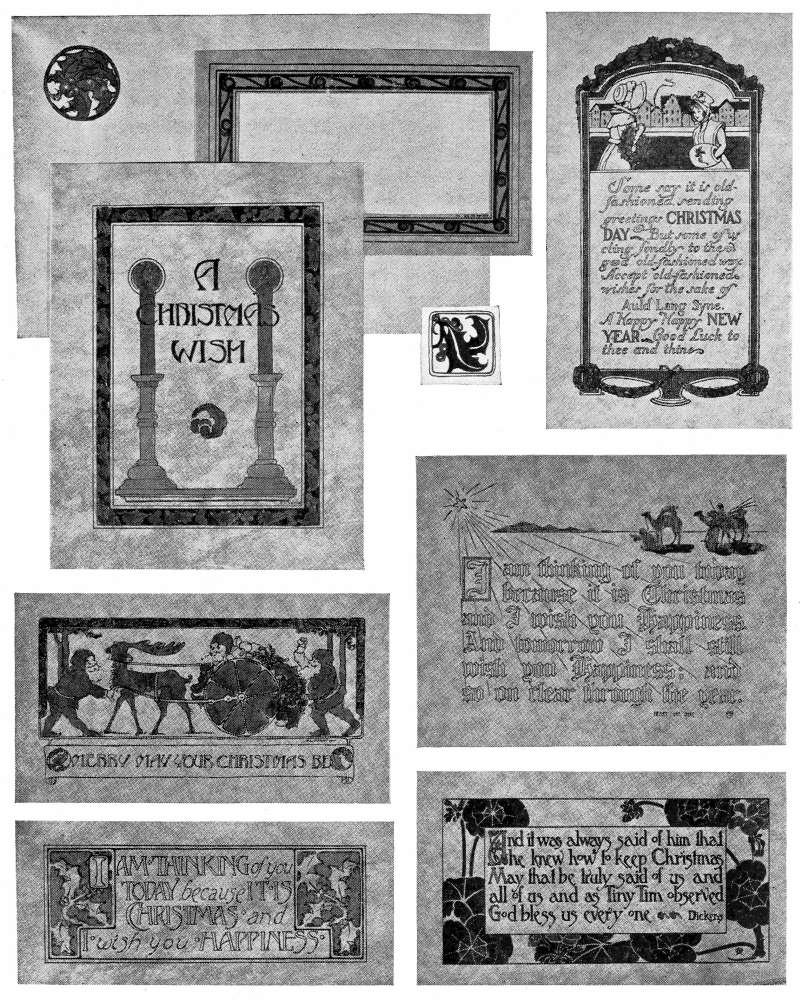 A
CHRISTMAS
WISH
Some say it is old-
fashioned sending
greetings CHRISTMAS
DAY But some of us
cling fondly to the
good old-fashioned way.
Accept old-fashioned
wishes for the sake of
Auld Lang Syne.
A Happy Happy NEW
YEAR Good Luck to
thee and thine
I am thinking of you today
because it is Christmas
and I wish you Happiness.
And tomorrow I shall still
wish you Happiness; and
so on clear through the year.
MERRY MAY YOUR CHRISTMAS BE
I AM THINKING of you
TODAY because IT IS
CHRISTMAS and
I wish you HAPPINESS
And it was always said of him that
he knew how to keep Christmas
May that be truly said of us and
all of us and as Tiny Tim observed
God bless us every one Dickens